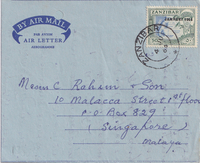 BY AIR MAIL
AIR LETTER
AEROGRAMME
ZANZIBAR
ZANZIBAR
Messrs C. Rahim & Son
10 Malacca Street 1st floor
P.O Box 829
(Singapore)
Malaya